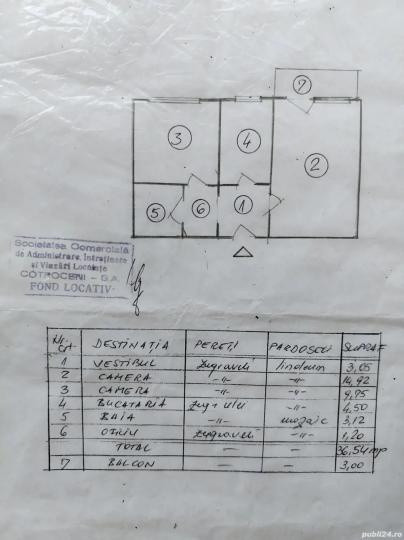 7
3
4
2
5
6
1
Societatea Comercială
de Administrare, Întreținere
și Vînzări Locuințe
COTROCENI - S.A.
FOND LOCATIV
Nr. Crt DESTINAȚIA PEREȚI PARDOSELI SUPRAF
1 VESTIBUL Zugraveli linoleum 3,05
2 CAMERA -"- -"- 14,92
3 CAMERA -"- -"- 9,75
4 BUCATARIA Zugr ulei -"- 4,50
5 BAIA -"- mozaic 3,12
6 OFICIU Zugraveli -"- 1,20
TOTAL — — 36,54 mp
7 BALCON — — 3,00
publi24.ro